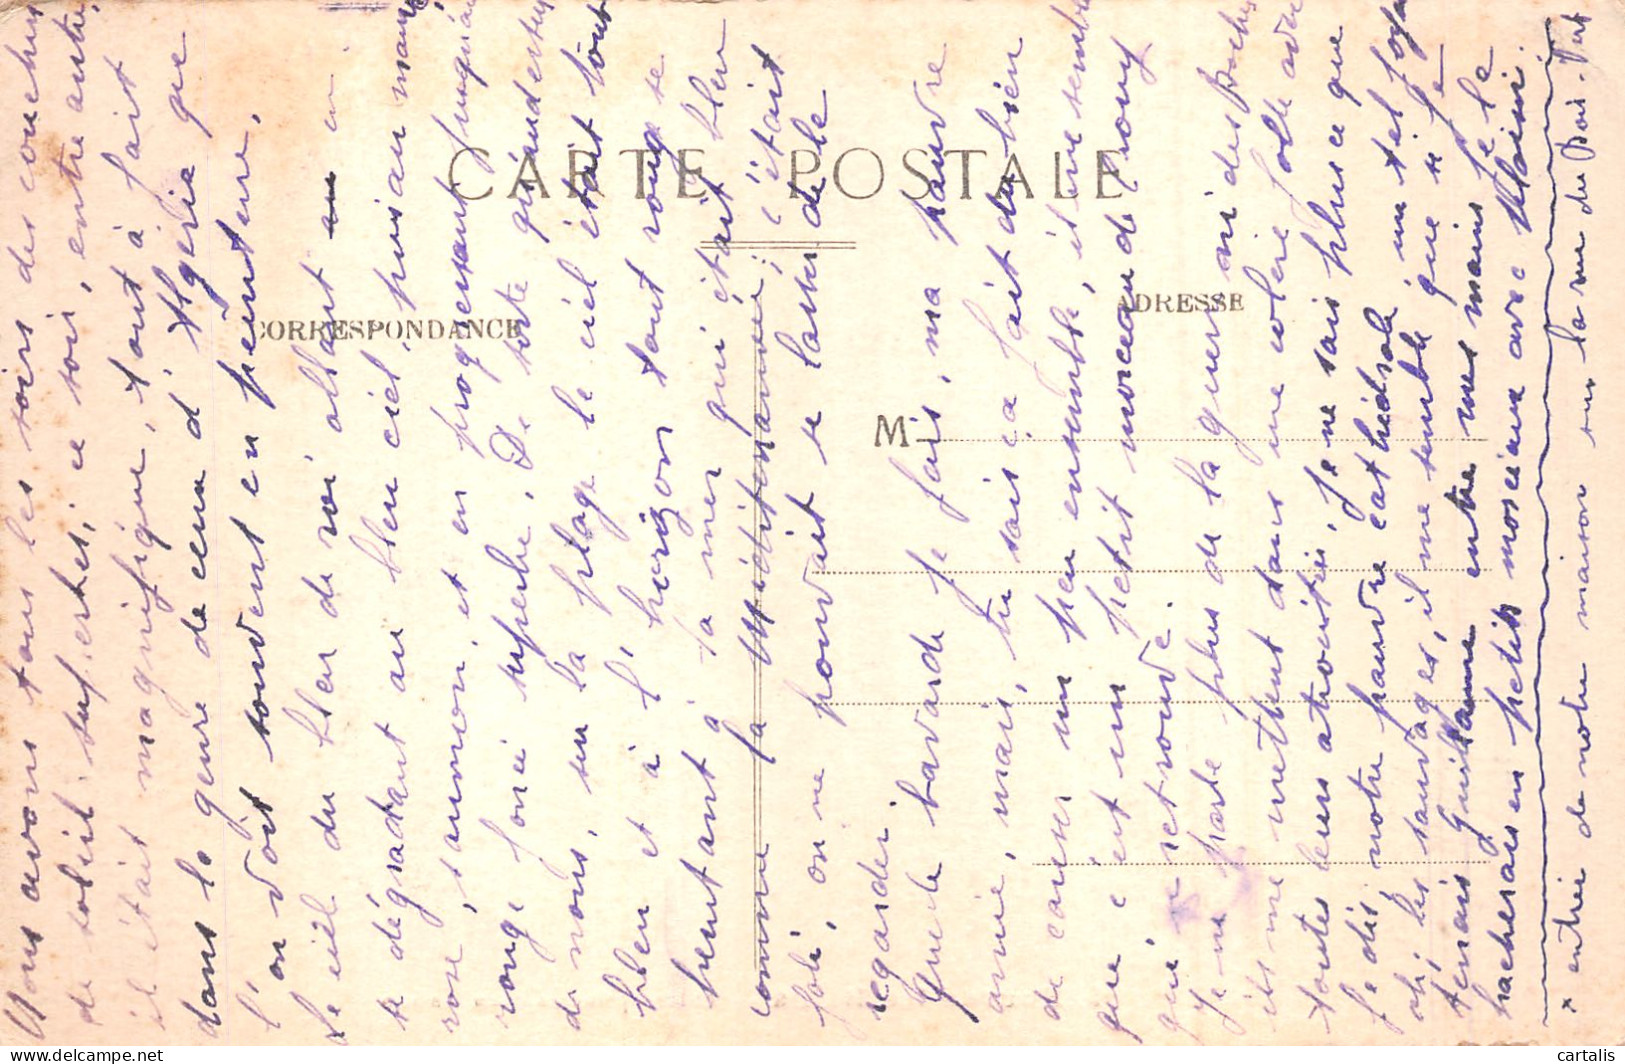 Nous avons tous les soirs des couchers
de soleil superbes ; ce soir, entre autre,
il était magnifique, tout à fait
dans le genre de ceux d'Algérie que
l'on voit souvent en peinture.
Le ciel du bleu de roi allant en
se dégradant au bleu ciel, puis au mauve,
rose, saumon, et en progressant jusqu'au
rouge foncé superbe. De sorte qu'au dessus
de nous, sur la plage le ciel était tout
bleu et à l'horizon tout rouge se
heurtant à la mer qui était bleu
comme la Méditerrannée ; c'était
joli, on ne pouvait se lasser de le
regarder.
Quelle bavarde je fais, ma pauvre
amie, mais, tu sais ça fait du bien
de causer un peu ensemble, il me semble
que c'est un petit morceau de Crouy
qui se retrouve.
Je ne parle plus de la guerre ni des Boches
ils me mettent dans une colère folle avec
toutes leurs atrocités, je ne sais plus ce que
je dis, notre pauvre cathédrale un tel joyau
ah ! les sauvages, il me semble que si je
tenais Guillaume entre mes mains je le
hacherais en petits morceaux avec plaisir.
x entrée de notre maison sur la rue du Bois-Vert
CARTE POSTALE
CORRESPONDANCE
ADRESSE
M
cartalis
delcampe.net